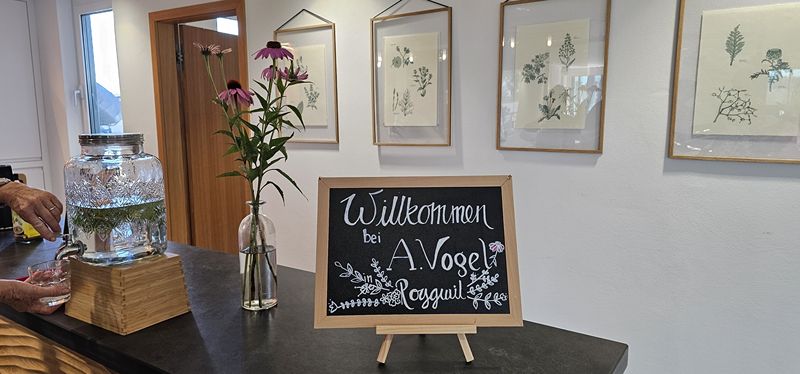 Willkommen
bei
A.Vogel
in
Roggwil